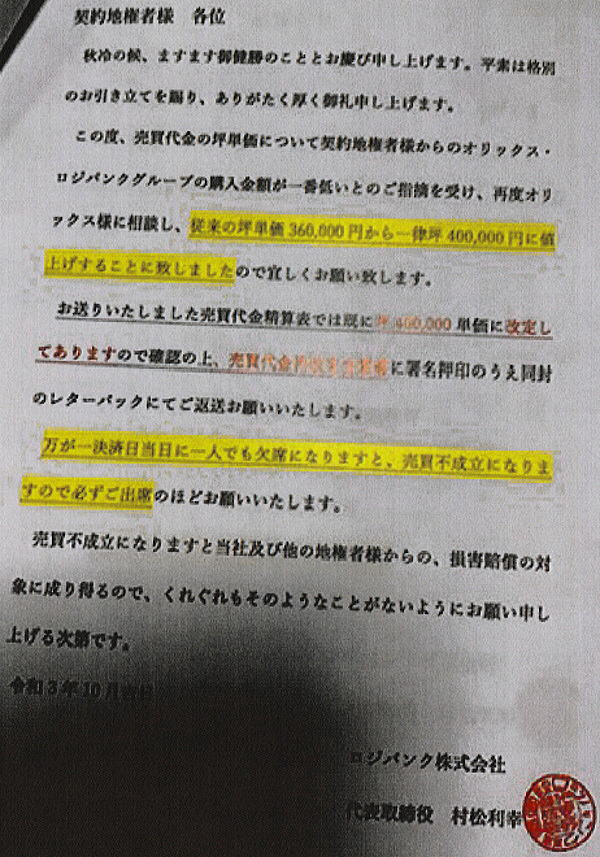 契約地権者様　各位
秋冷の候、ますます御健勝のこととお慶び申し上げます。平素は格別
のお引き立てを賜り、ありがたく厚く御礼申し上げます。
この度、売買代金の坪単価について契約地権者様からのオリックス・
ロジバンクグループの購入金額が一番低いとのご指摘を受け、再度オリ
ックス様に相談し、従来の坪単価 360,000 円から一律坪 400,000 円に値
上げすることに致しましたので宜しくお願い致します。
お送りいたしました売買代金精算表では既に坪 400,000 単価に改定し
てありますので確認の上、売買代金に署名押印のうえ同封
のレターパックにてご返送お願いいたします。
万が一決済日当日に一人でも欠席になりますと、売買不成立になりま
すので必ずご出席のほどお願いいたします。
売買不成立になりますと当社及び他の地権者様からの、損害賠償の対
象に成り得るので、くれぐれもそのようなことがないようにお願い申し
上げる次第です。
令和 3 年 10 月
ロジバンク株式会社
代表取締役　村松利幸